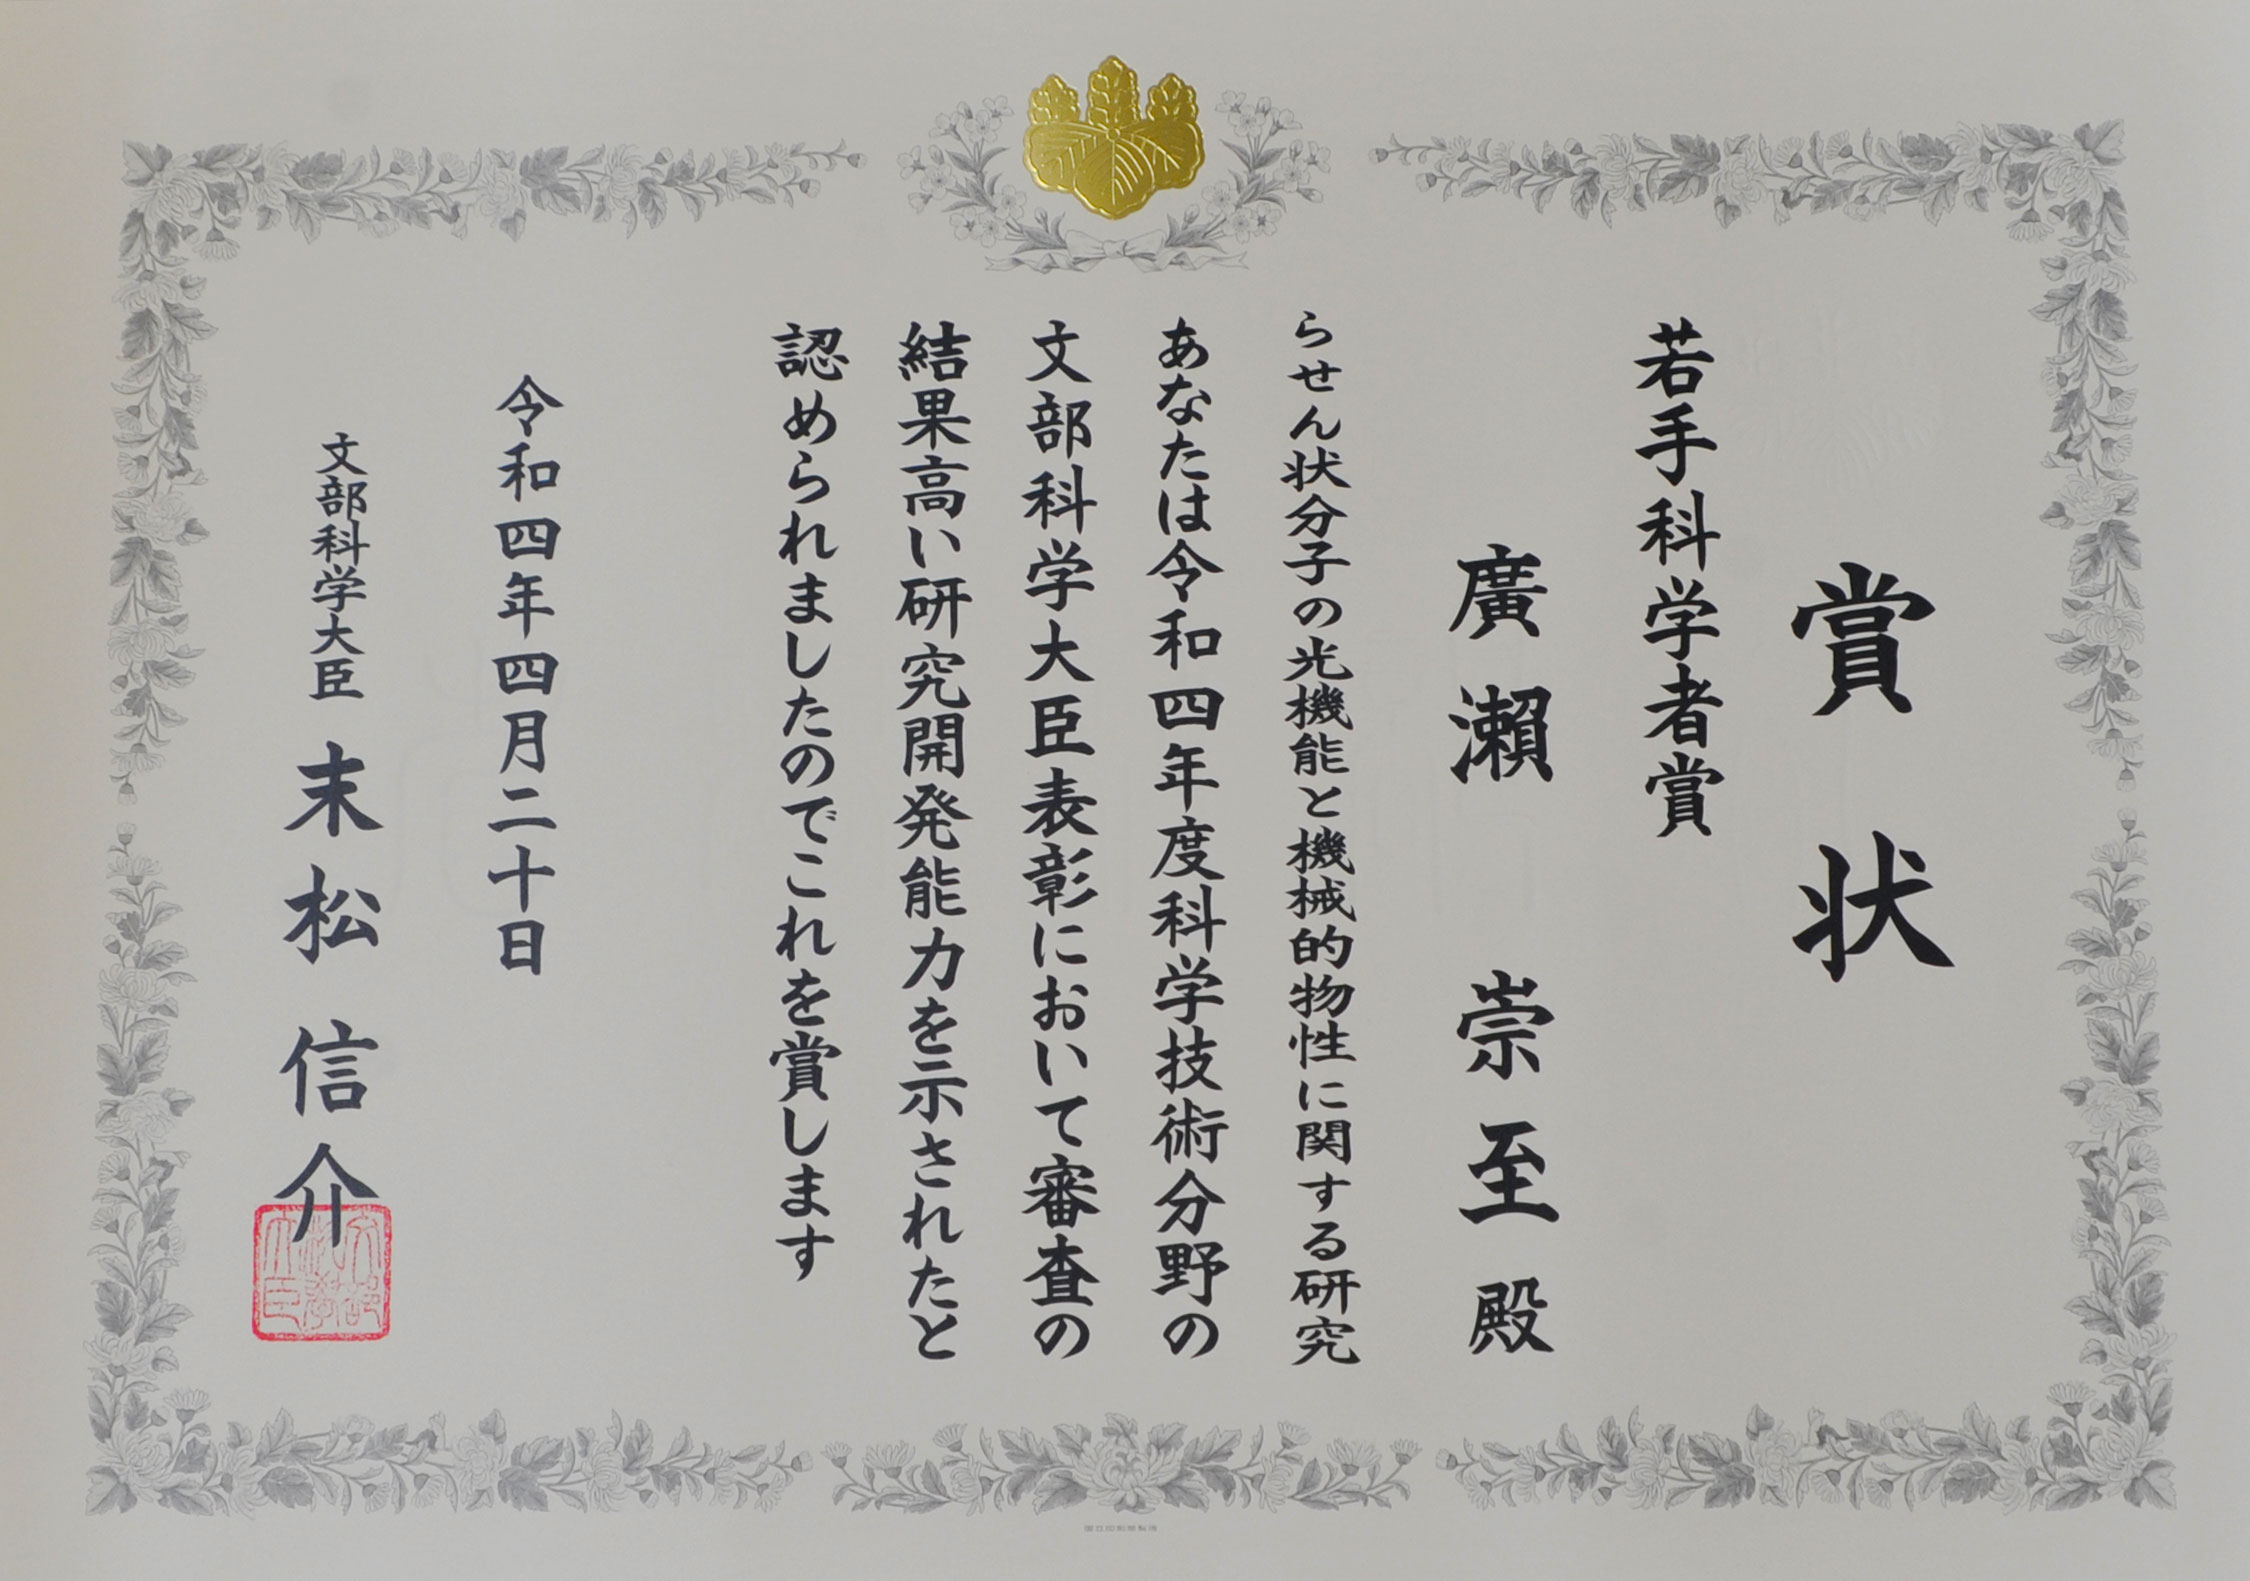 賞状
若手科学者賞
廣瀬 崇至 殿
らせん状分子の光機能と機械的物性に関する研究
あなたは令和四年度科学技術分野の
文部科学大臣表彰において審査の
結果高い研究開発能力を示されたと
認められましたのでこれを賞します
令和四年四月二十日
文部科学大臣 末松信介